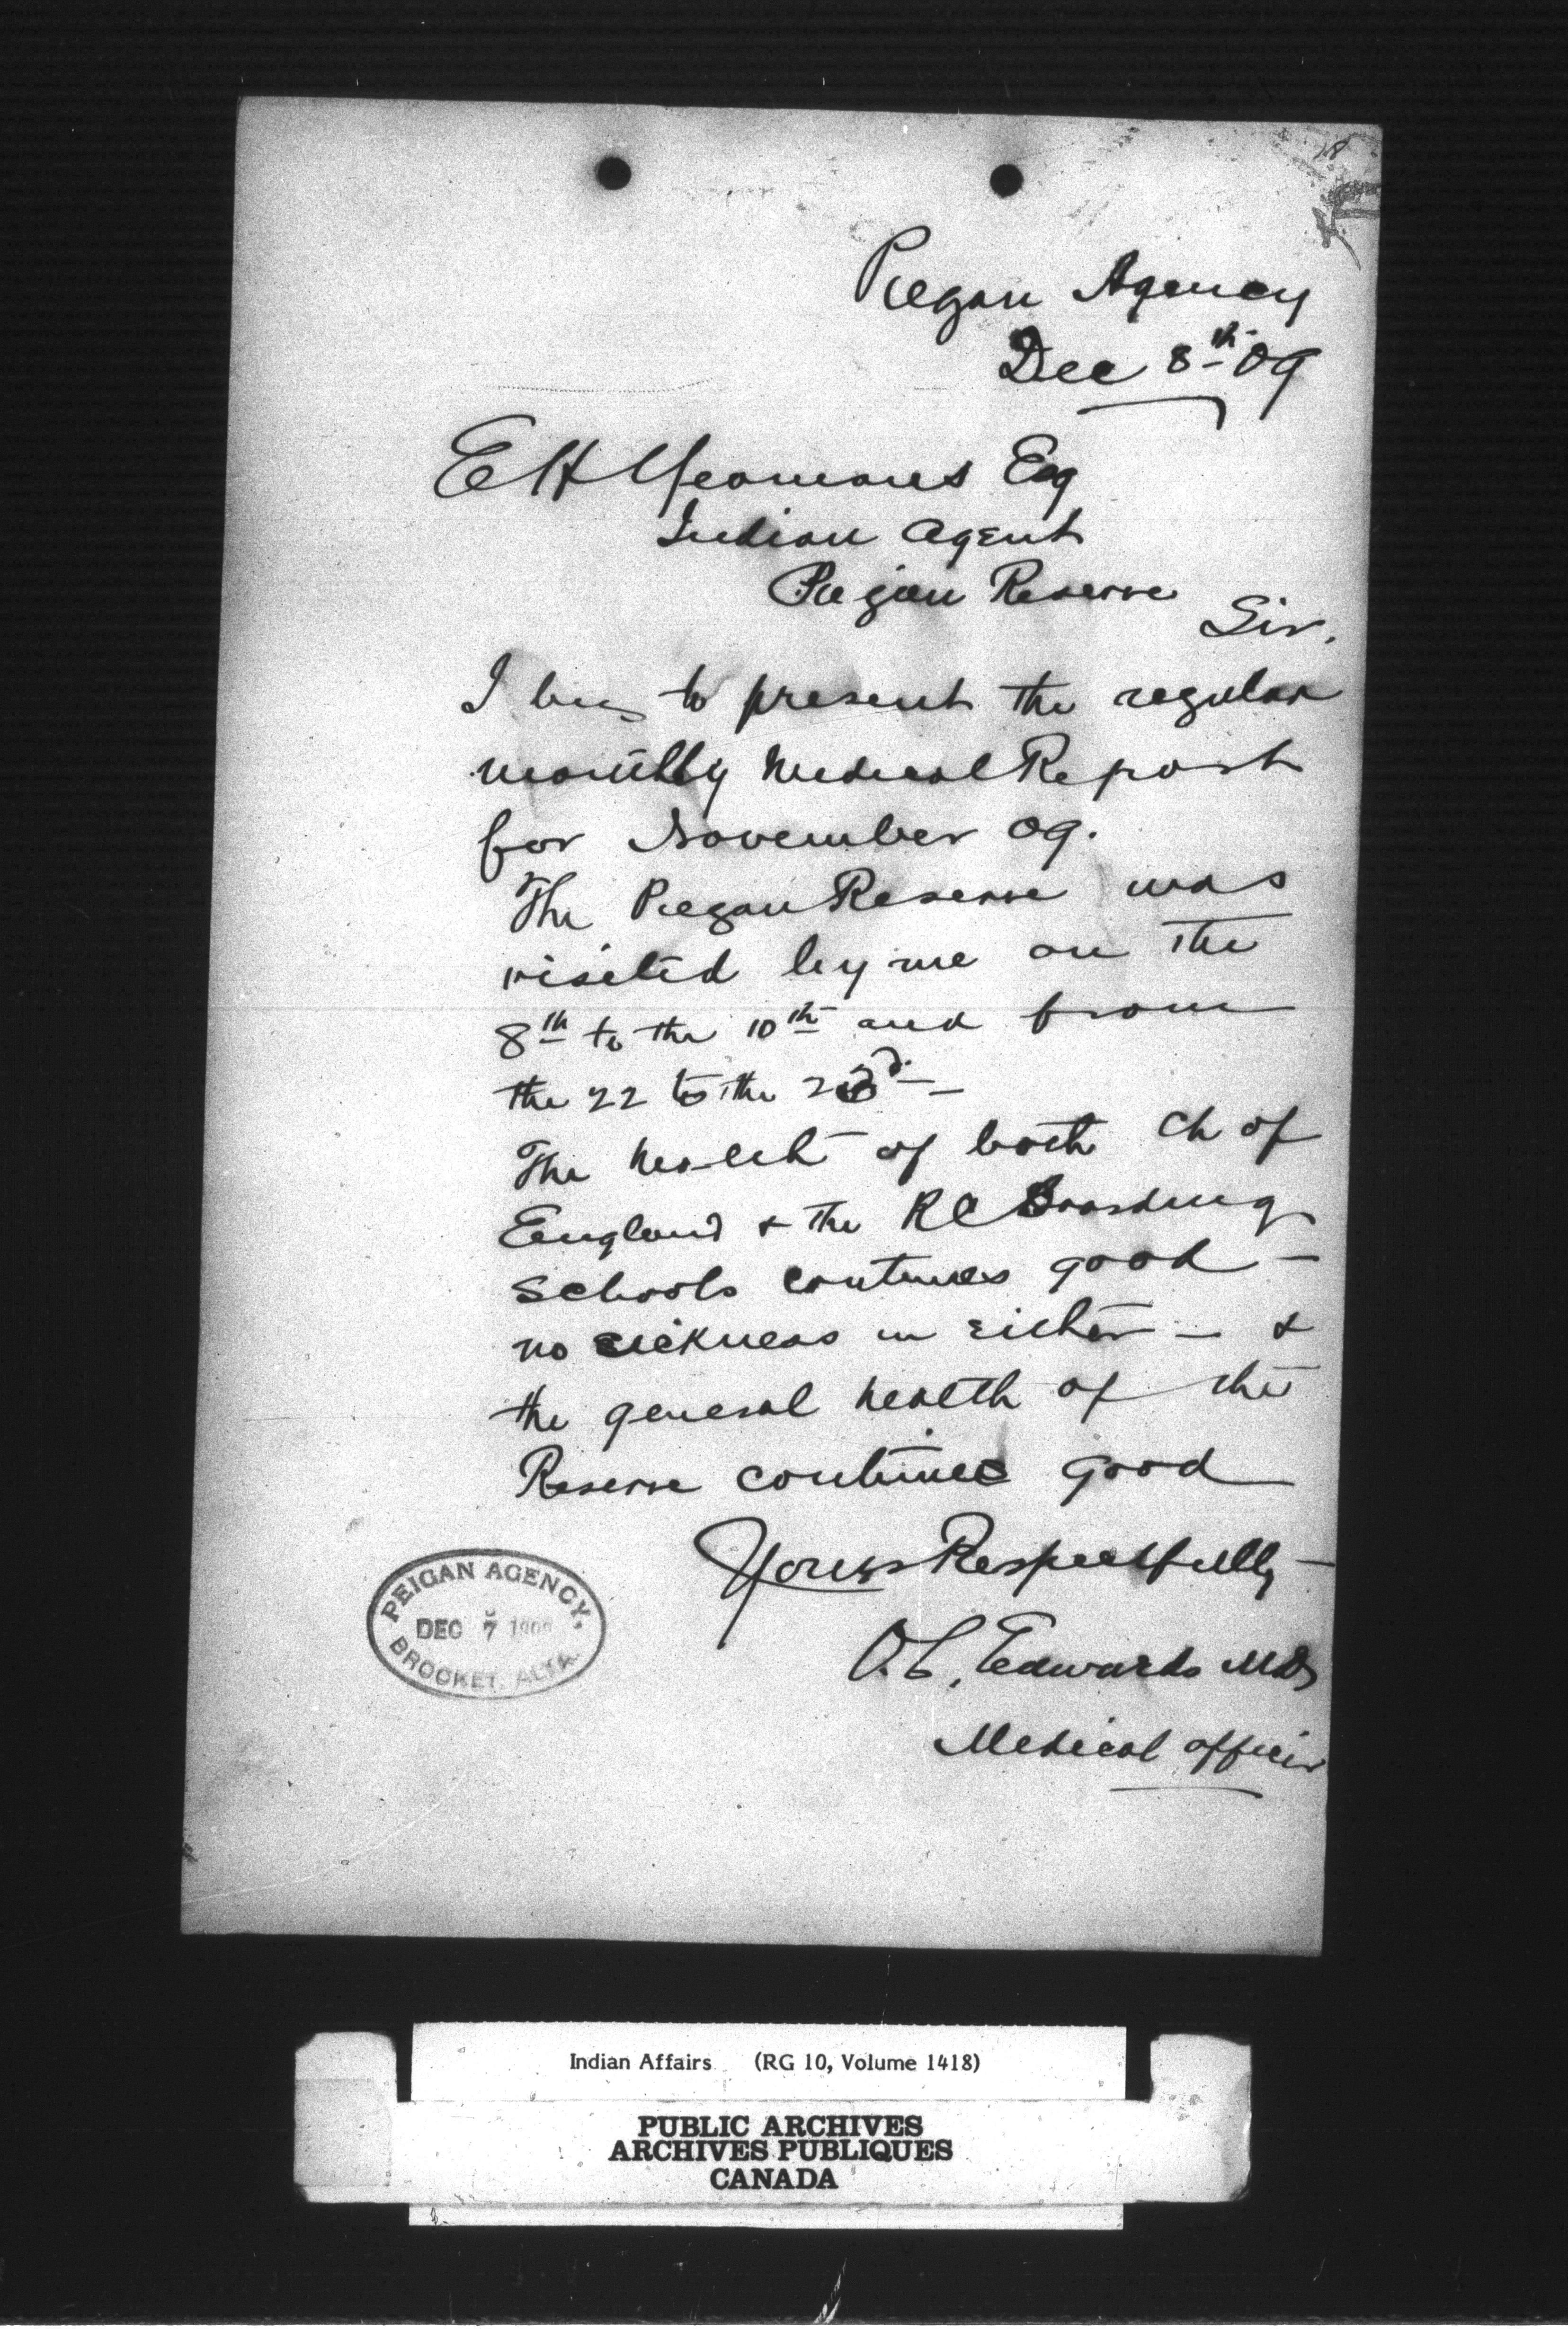 Piegan Agency
Dec 8th 09
E H Yeomans Esq
Indian Agent
Piegan Reserve
Sir.
I beg to present the regular
monthly Medical Report
for November 09.
The Piegan Reserve was
visited by me on the
8th to the 10th and from
the 22 to the 23d —
The health of both Ch of
England & the RC Boarding
Schools continues good —
no sickness in either — &
the general health of the
Reserve continues good
Yours Respectfully —
O.C. Edwards MD
Medical officer
PEIGAN AGENCY,
DEC 7 1909
BROCKET, ALTA.
Indian Affairs (RG 10, Volume 1418)
PUBLIC ARCHIVES
ARCHIVES PUBLIQUES
CANADA